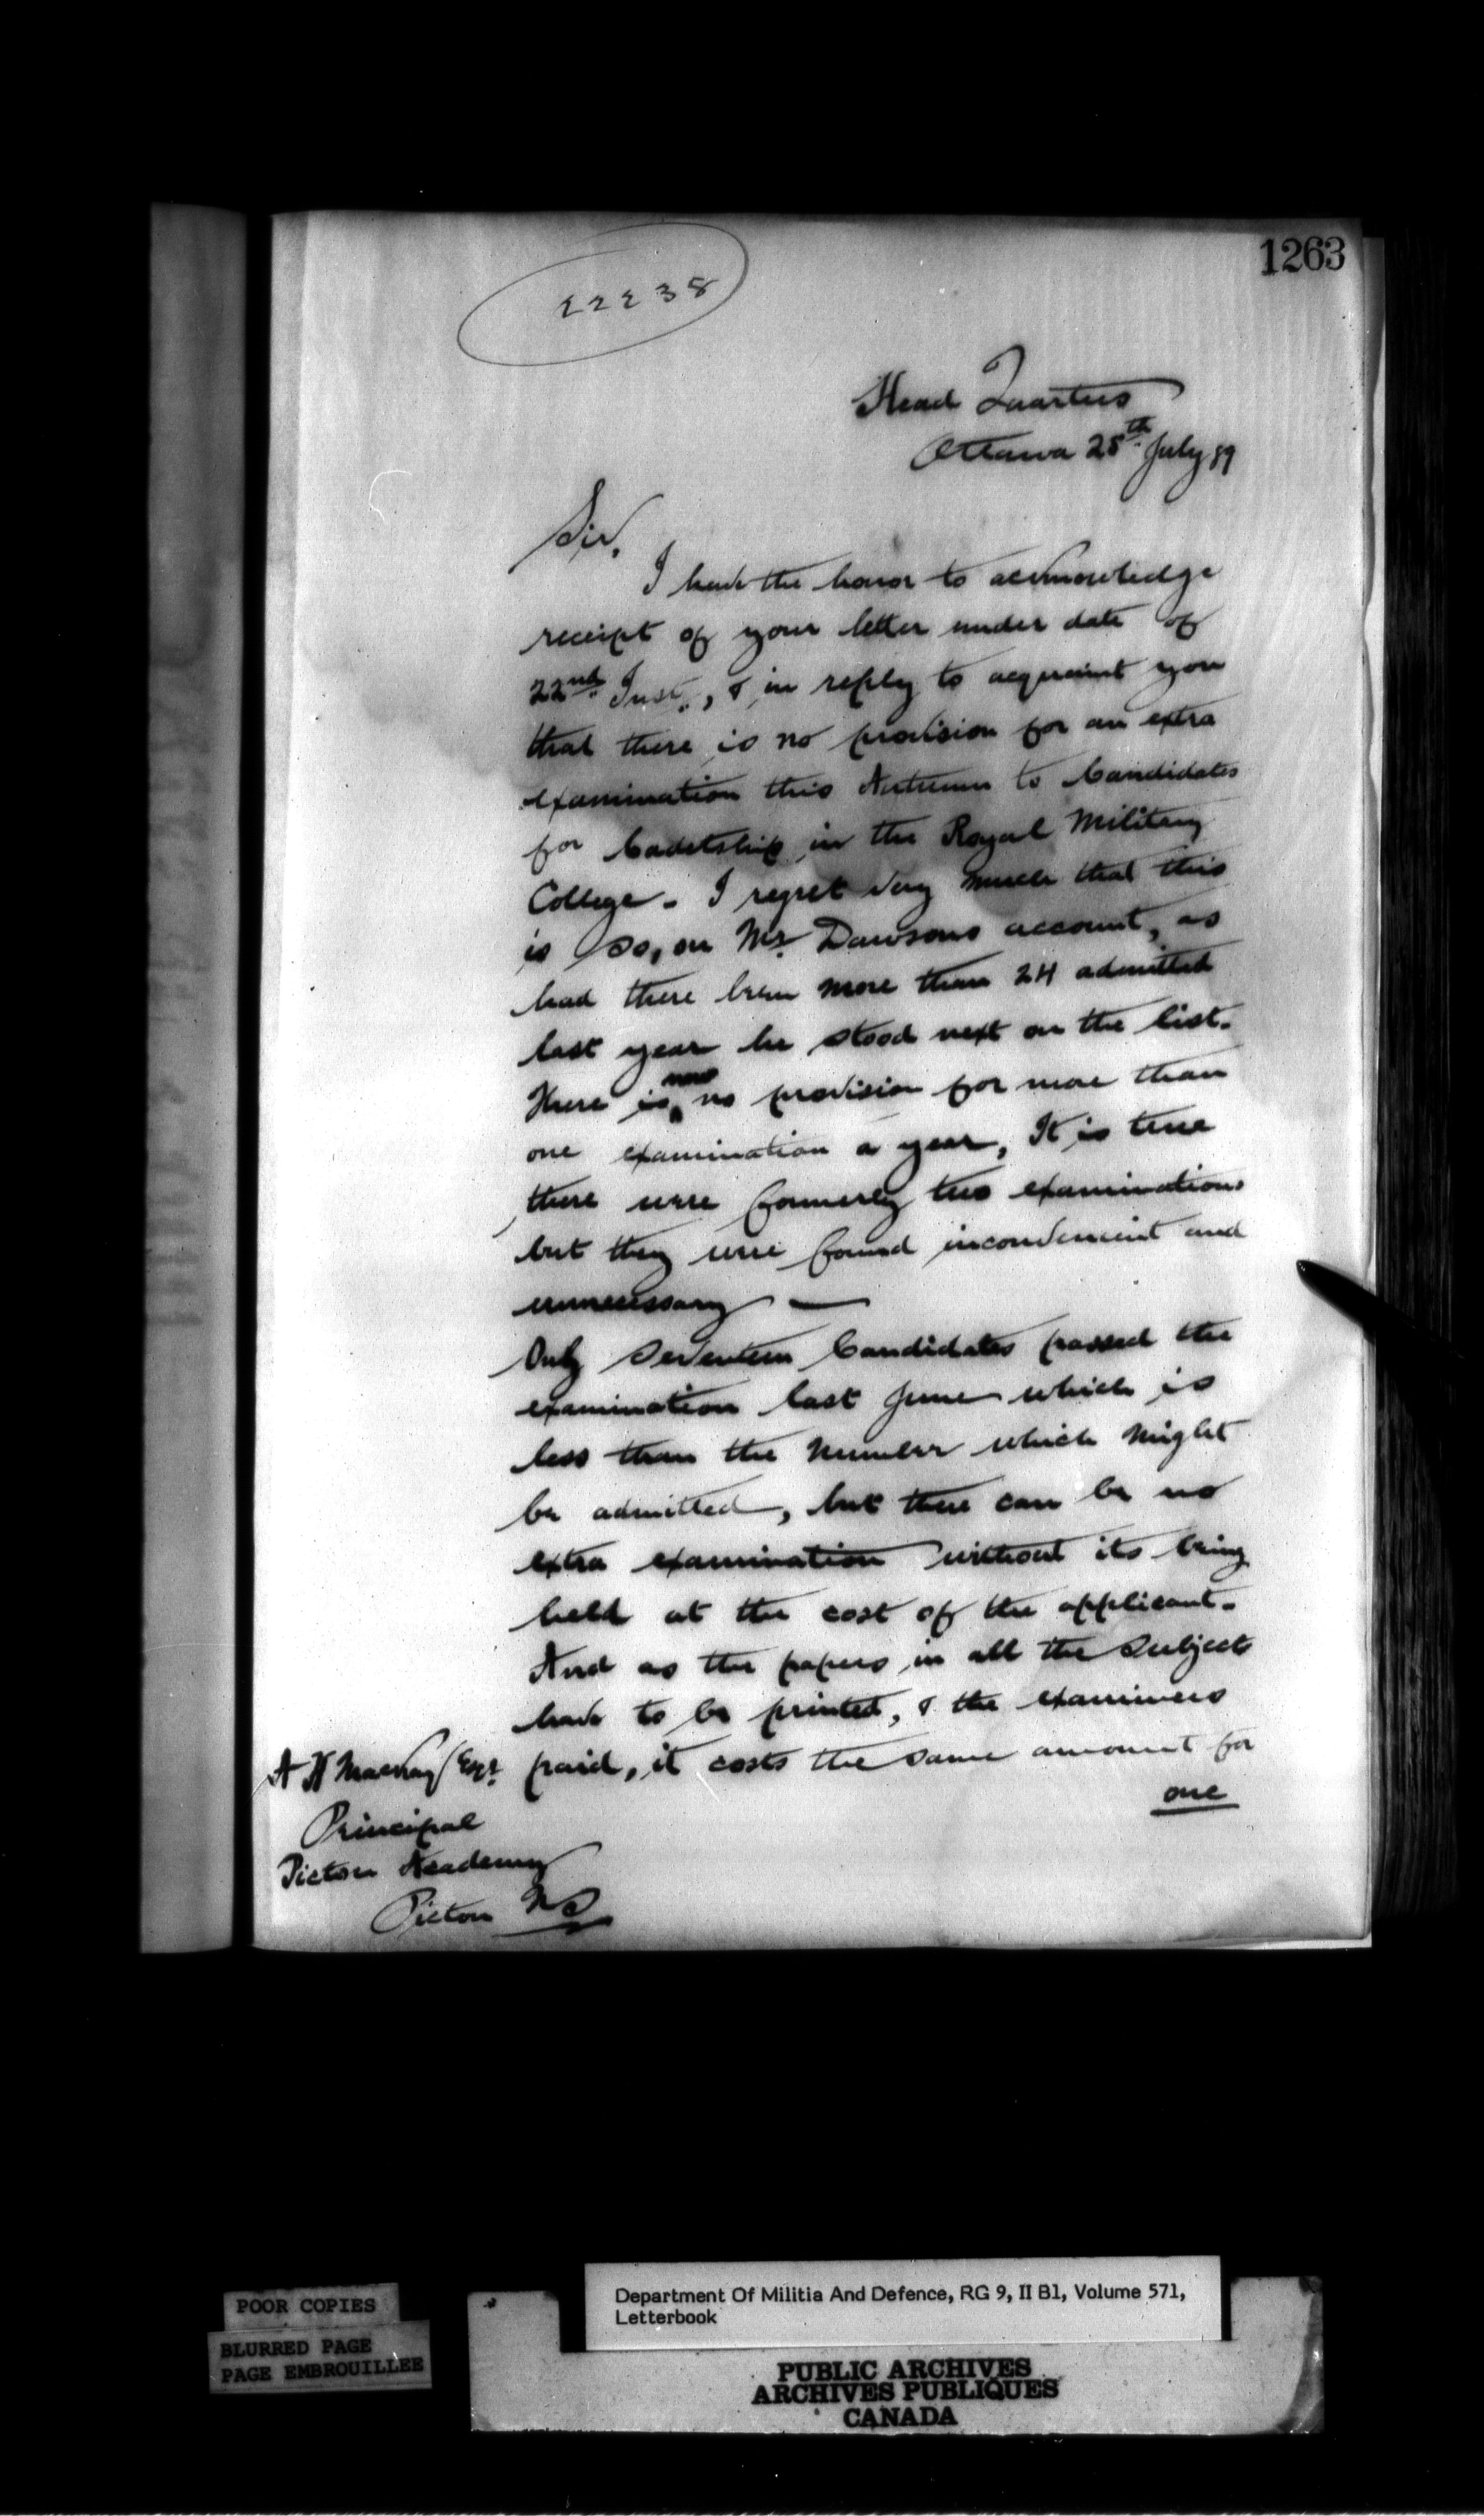 1263
Head Quarters
Ottawa 25th July 89
Sir,
I have the honor to acknowledge
receipt of your letter under date of
22nd Inst., & in reply to acquaint you
that there is no provision for an extra
examination this Autumn to Candidates
for Cadetship in the Royal Military
College - I regret very much that this
is so, on Mr Dawsons account, as
had there been more than 24 admitted
last year he stood next on the list.
There is now no provision for more than
one examination a year, It is true
there were formerly two examinations
but they were found inconvenient and
unnecessary —
Only Seventeen Candidates passed the
examination last June which is
less than the Number which Might
be admitted, but there can be no
extra examination without its being
held at the cost of the applicant.
And as the papers in all the Subjects
have to be printed, & the examiners
paid, it costs the same amount for
one
A H MacKay Esqr
Principal
Pictou Academy
Pictou NS
POOR COPIES
BLURRED PAGE
PAGE EMBROUILLEE
Department Of Militia And Defence, RG 9, II B1, Volume 571,
Letterbook
PUBLIC ARCHIVES
ARCHIVES PUBLIQUES
CANADA